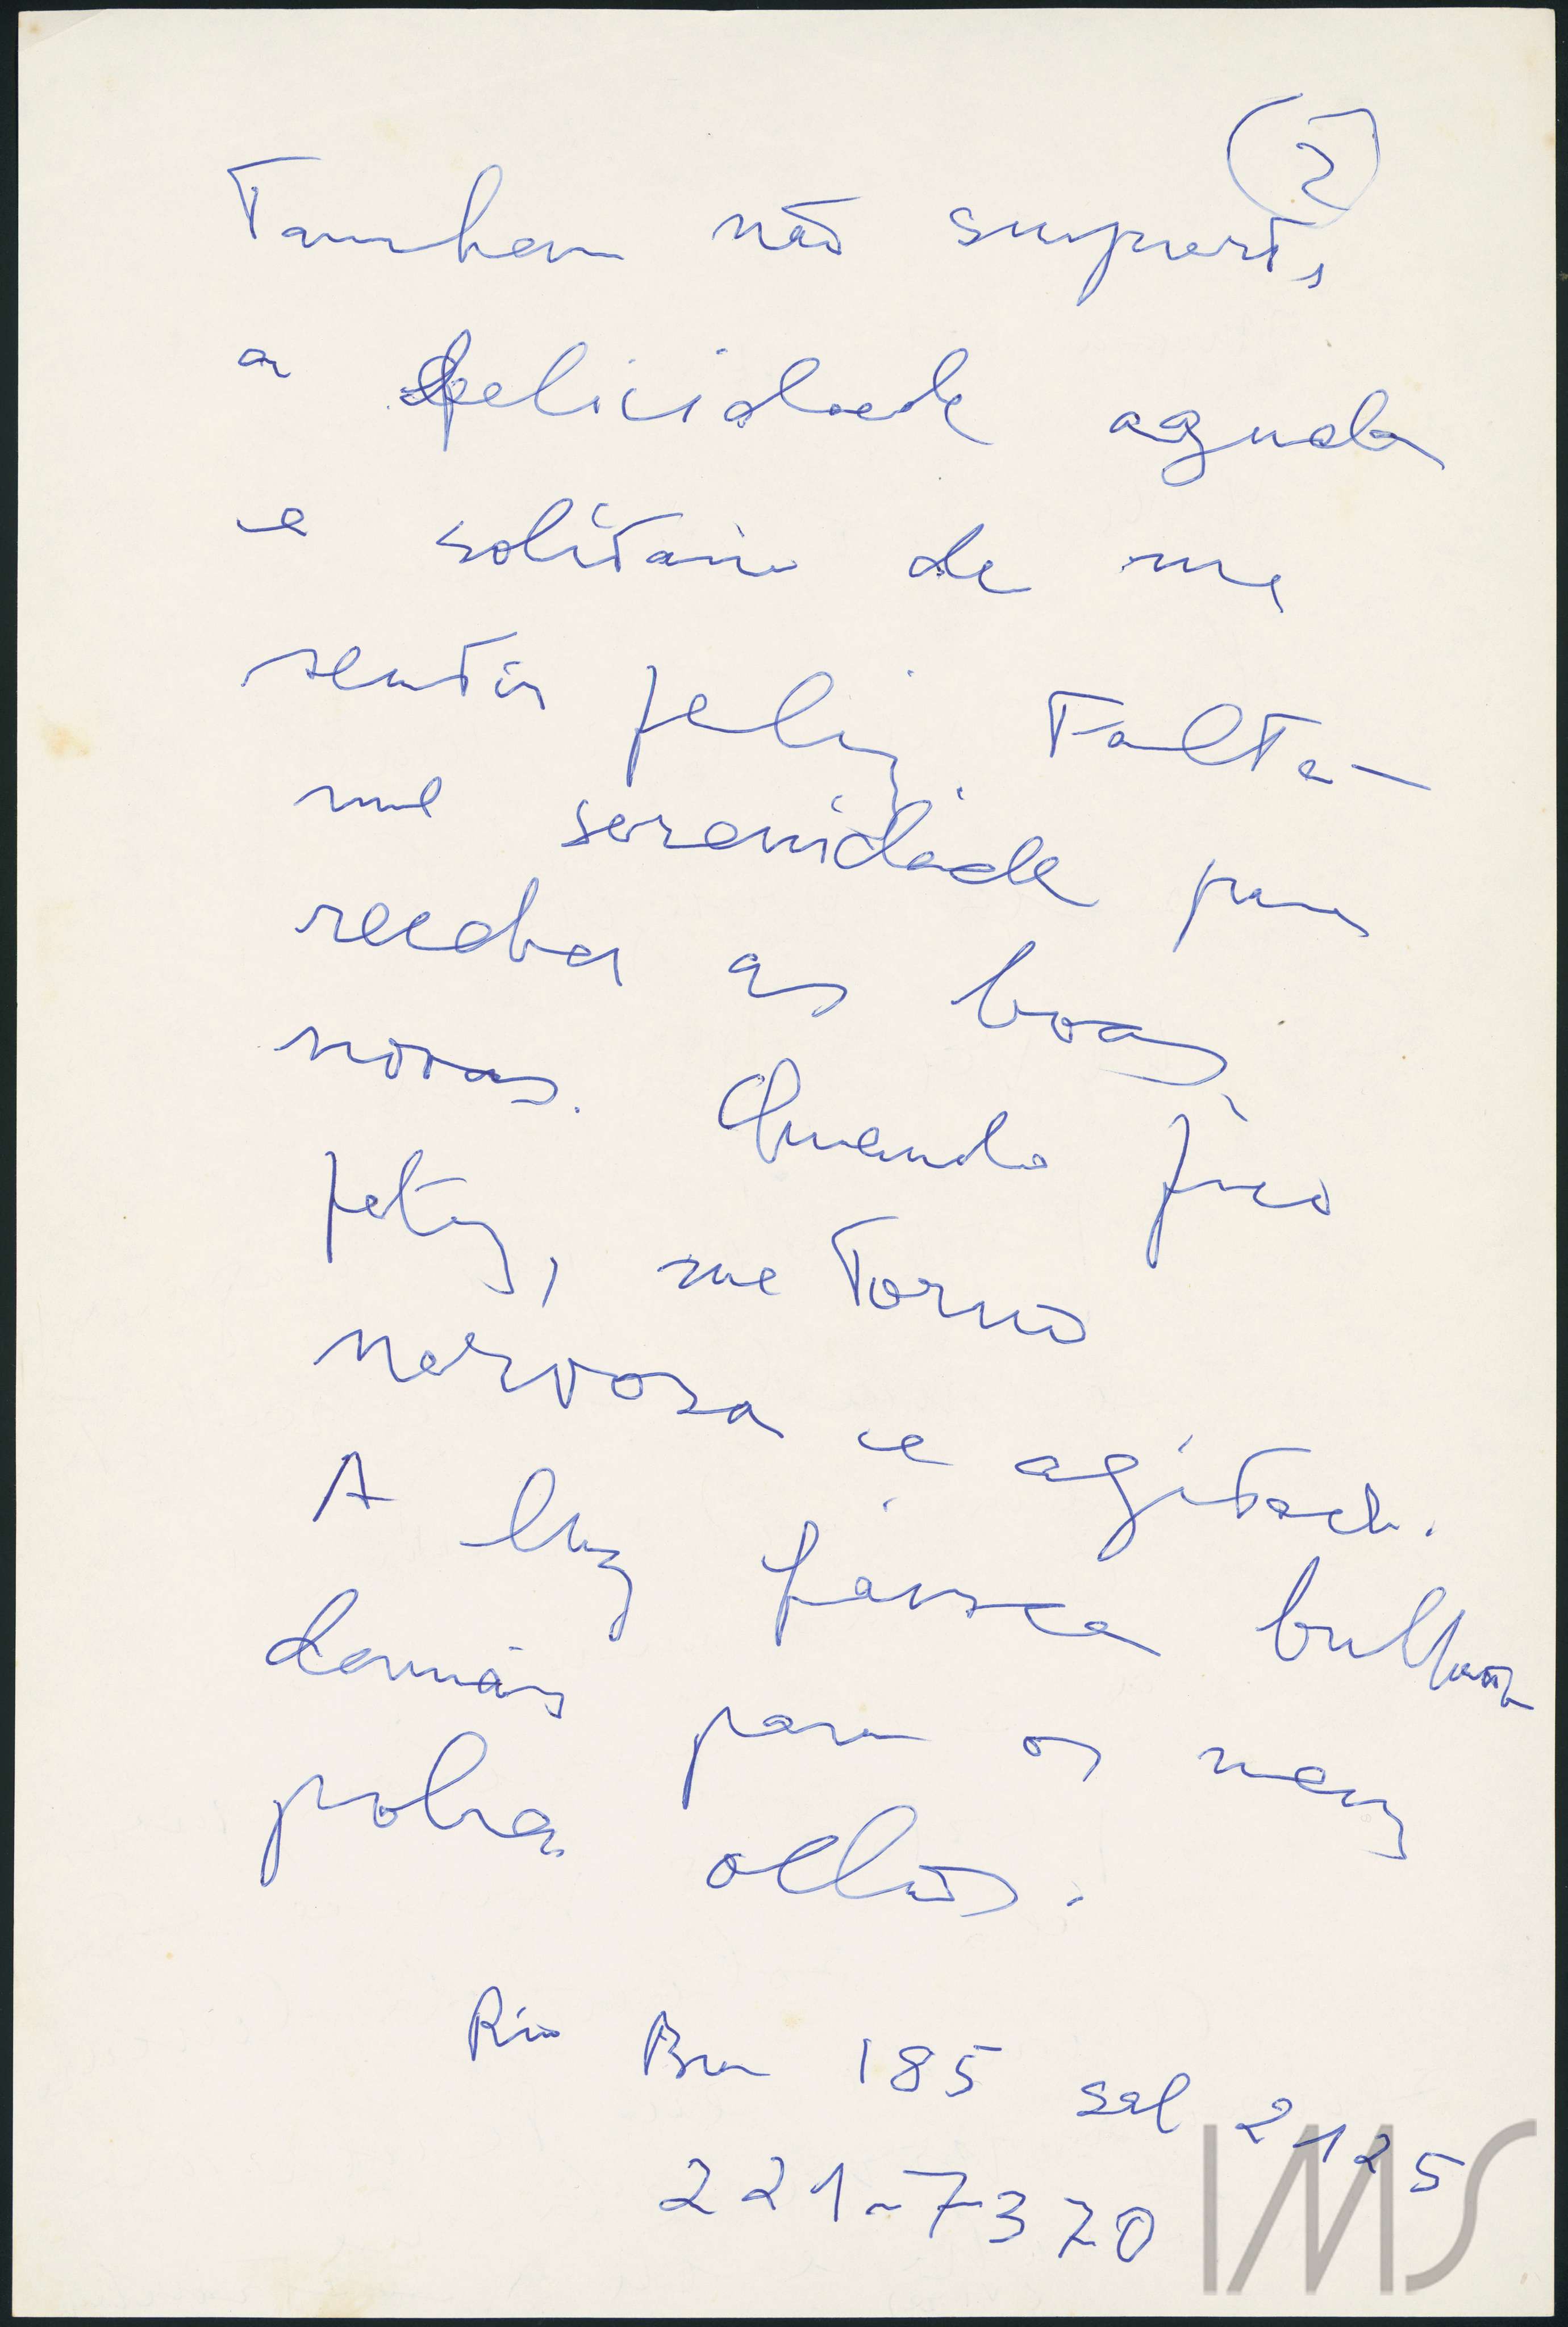 2
Tambem não suporto
a felicidade aguda
e solitaria de me
sentir feliz. Falta-
me serenidade para
receber as boas
novas. Quando fico
feliz, me torno
nervosa e agitada.
A luz faísca brilhante
demais para os meus
pobres olhos.
Rio Bran 185 sal 2125
221-7370
IMS